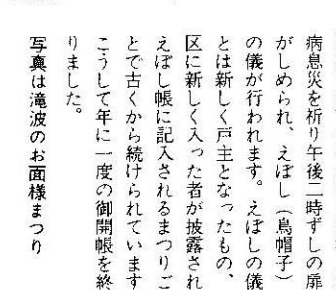 病息災を祈り午後二時ずしの扉
がしめられ、えぼし（烏帽子）
の儀が行われます。えぼしの儀
とは新しく戸主となったもの、
区に新しく入った者が披露され
えぼし帳に記入されるまつりご
とで古くから続けられています
こうして年に一度の御開帳を終
りました。
写真は滝波のお面様まつり